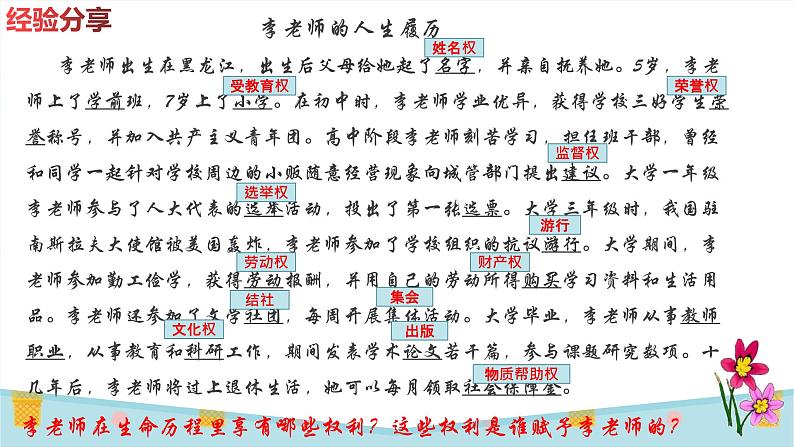 经验分享
李老师的人生履历
姓名权
李老师出生在黑龙江，出生后父母给她起了名字，并亲自抚养她。5岁，李老
受教育权
荣誉权
师上了学前班，7岁上了小学。在初中时，李老师学业优异，获得学校三好学生荣
誉称号，并加入共产主义青年团。高中阶段李老师刻苦学习，担任班干部，曾经
监督权
和同学一起针对学校周边的小贩随意经营现象向城管部门提出建议。大学一年级
选举权
李老师参与了人大代表的选举活动，投出了第一张选票。大学三年级时，我国驻
游行
南斯拉夫大使馆被美国轰炸，李老师参加了学校组织的抗议游行。大学期间，李
劳动权
财产权
老师参加勤工俭学，获得劳动报酬，并用自己的劳动所得购买学习资料和生活用
结社
集会
品。李老师还参加了文学社团，每周开展集体活动。大学毕业，李老师从事教师
文化权
出版
职业，从事教育和科研工作，期间发表学术论文若干篇，参与课题研究数项。十
物质帮助权
几年后，李老师将过上退休生活，她可以每月领取社会保障金。
李老师在生命历程里享有哪些权利？这些权利是谁赋予李老师的？